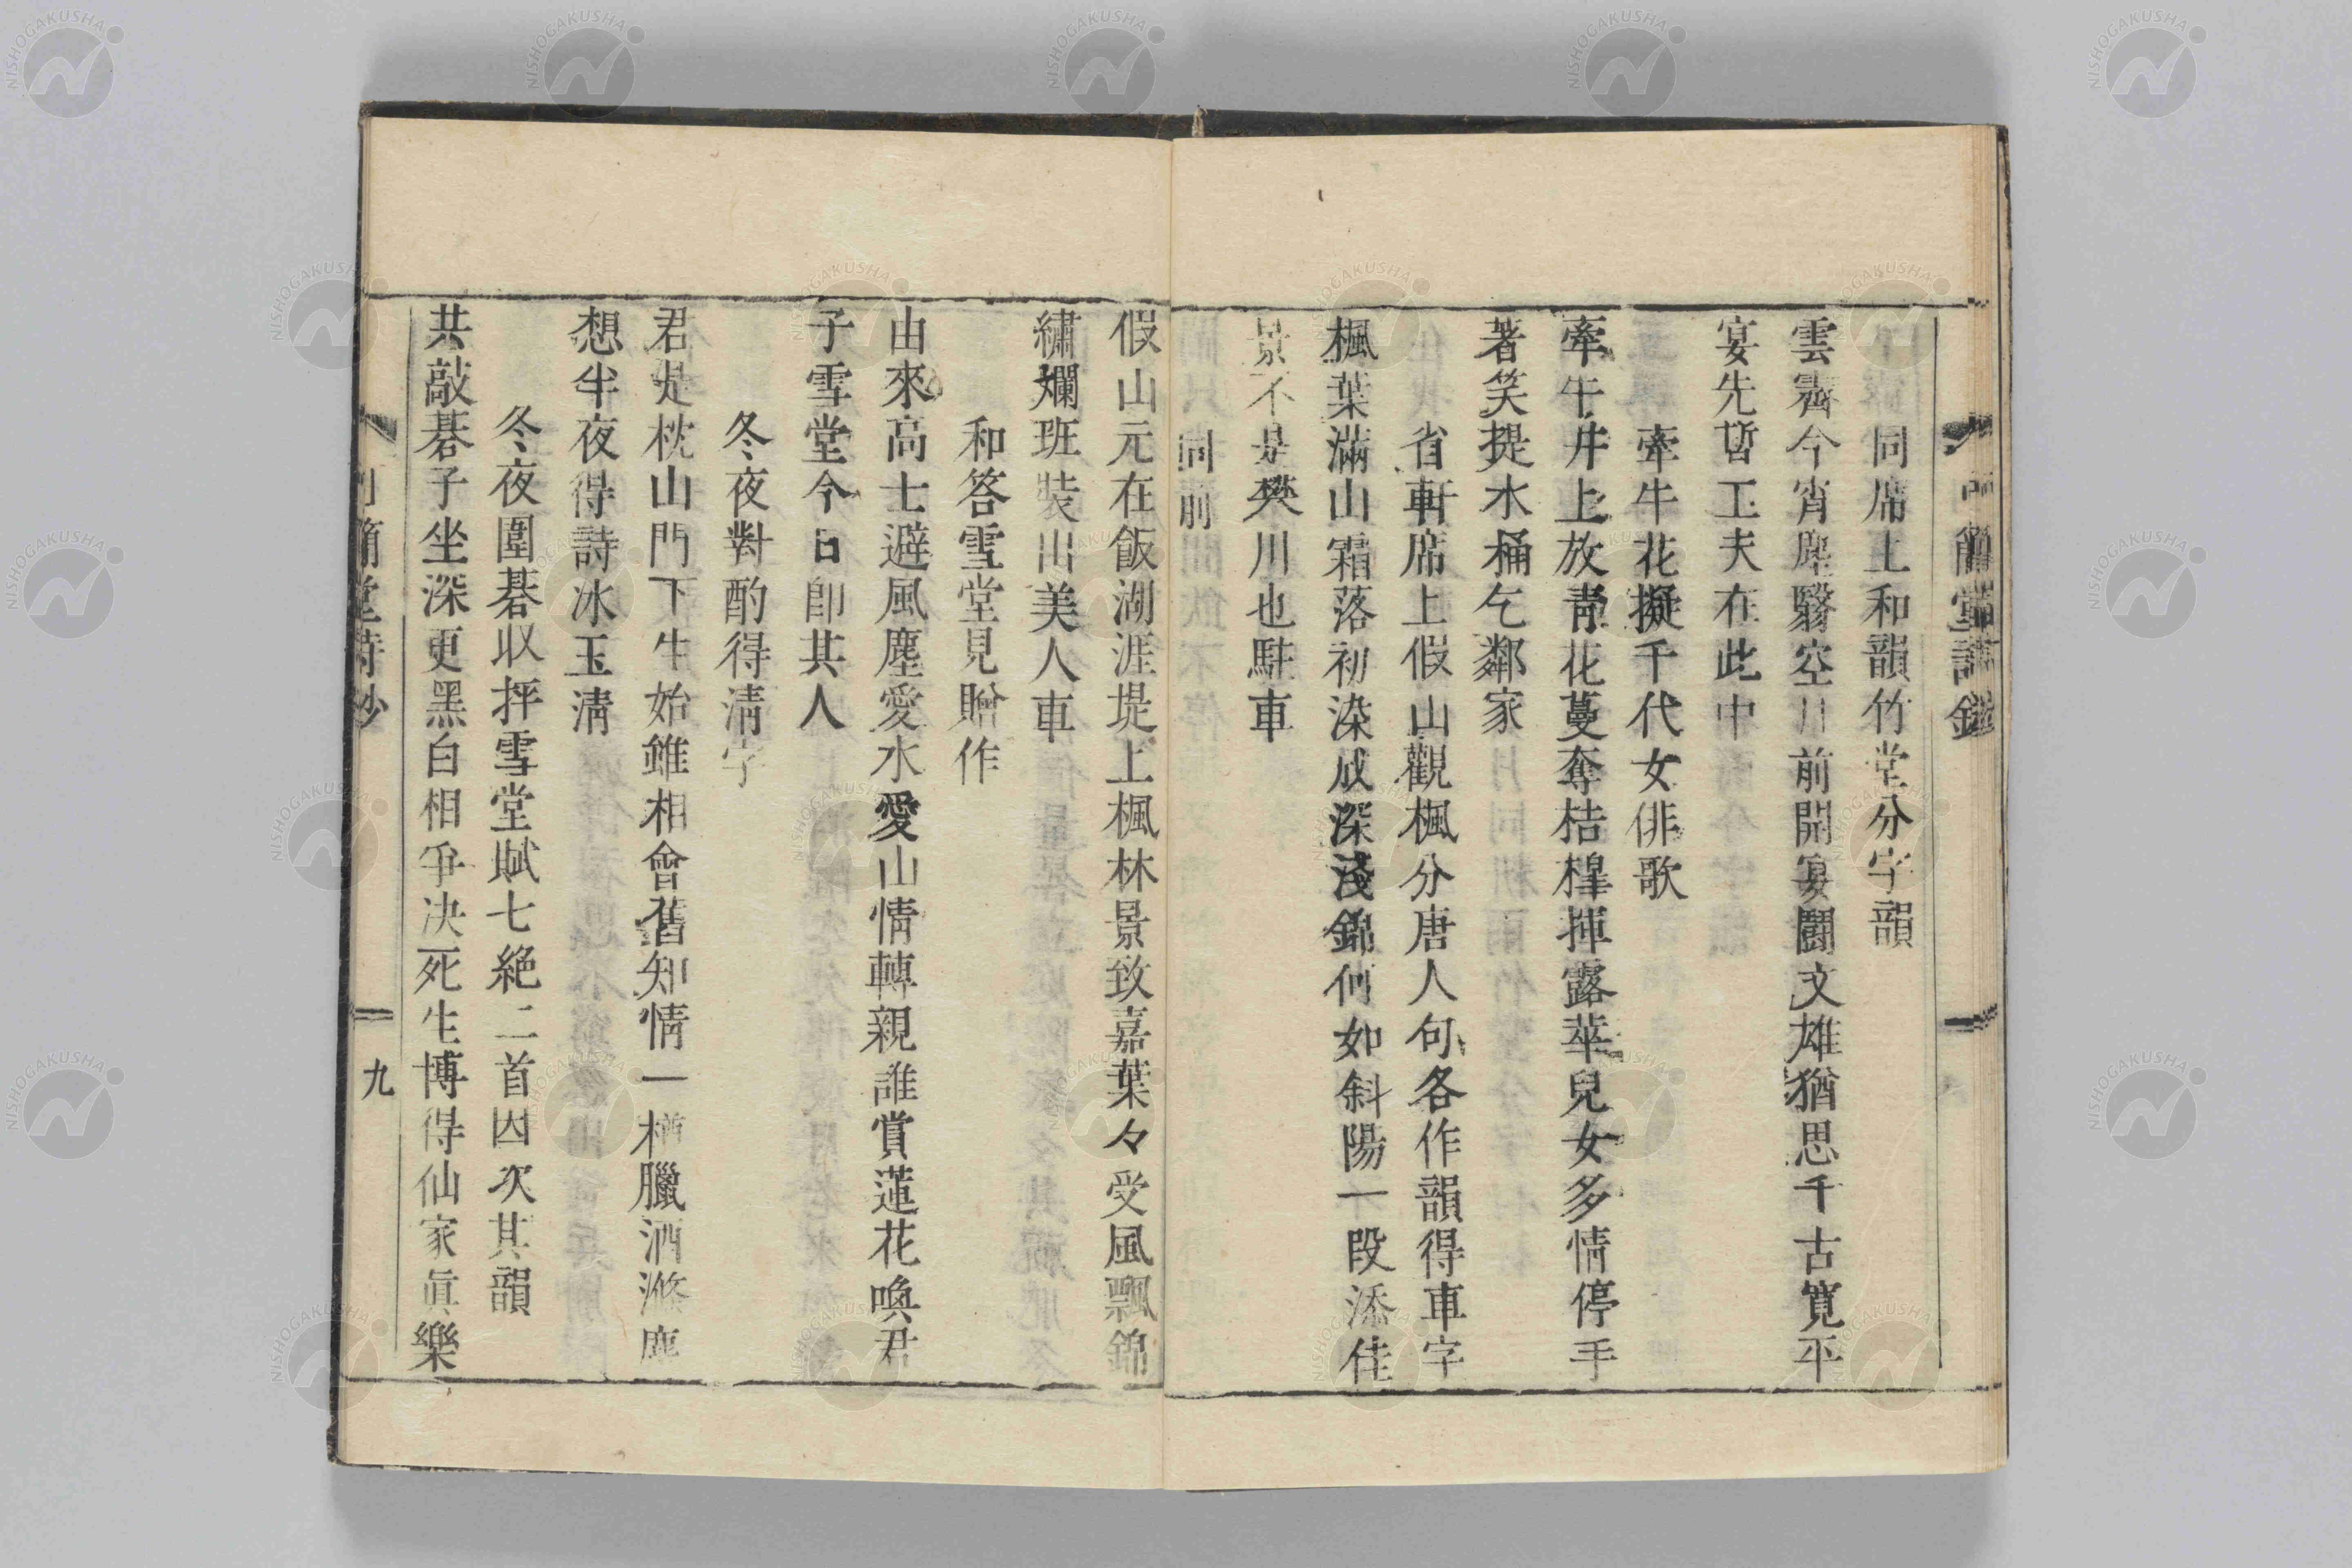 同席上和韻竹堂分字韻
雲霽今宵塵翳空川前開宴鬪文雄猶思千古寛平
宴先哲工夫在此中
牽牛花擬千代女俳歌
牽牛井上放靑花蔓奪桔槹揮露華兒女多情停手
著笑提水桶乞鄰家
省軒席上假山觀楓分唐人句各作韻得車字
楓葉滿山霜落初染成深淺錦何如斜陽一段添佳
景不是樊川也駐車
同前
假山元在飯湖涯堤上楓林景致嘉葉々受風飄錦
繡爛班裝出美人車
和答雪堂見贈作
由來高士避風塵愛水愛山情轉親誰賞蓮花喚君
子雪堂今日卽其人
冬夜對酌得淸字
君是枕山門下生始雖相會舊知情一樽臘酒滌塵
想半夜得詩冰玉淸
冬夜圍碁収抨雪堂賦七絶二首因次其韻
共敲碁子坐深更黑白相爭决死生博得仙家眞樂
簡堂詩鈔
九